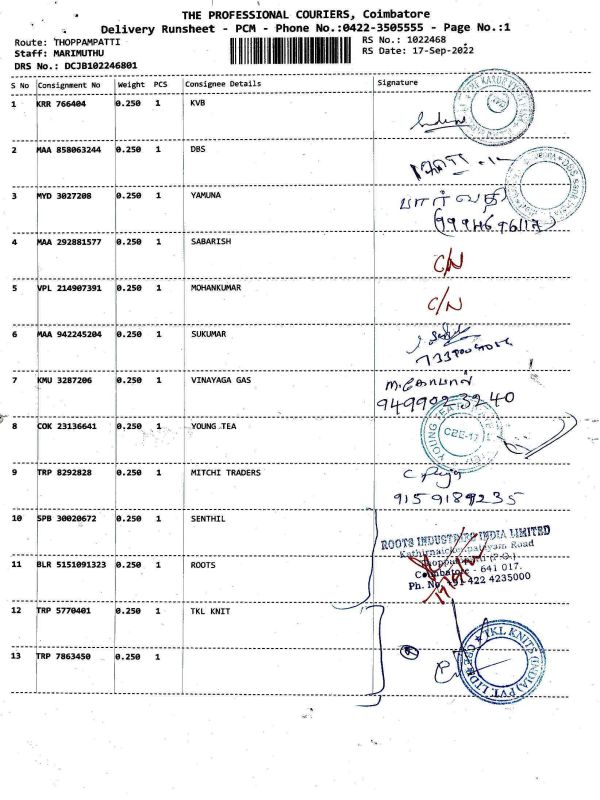 THE PROFESSIONAL COURIERS, Coimbatore
Delivery Runsheet - PCM - Phone No.:0422-3505555 - Page No.:1
Route: THOPPAMPATTI
Staff: MARIMUTHU
DRS No.: DCJB102246801
RS No.: 1022468
RS Date: 17-Sep-2022
S No Consignment No Weight PCS Consignee Details Signature
1 KRR 766404 0.250 1 KVB
2 MAA 858063244 0.250 1 DBS
3 MYD 3027208 0.250 1 YAMUNA
பார்வதி
4 MAA 292881577 0.250 1 SABARISH C/N
5 VPL 214907391 0.250 1 MOHANKUMAR C/N
6 MAA 942245204 0.250 1 SUKUMAR
7 KMU 3287206 0.250 1 VINAYAGA GAS
9499923240
8 COK 23136641 0.250 1 YOUNG TEA
YOUNG TEA
CBE-17
9 TRP 8292828 0.250 1 MITCHI TRADERS
9159189235
10 SPB 30020672 0.250 1 SENTHIL
ROOTS INDUSTRIES INDIA LIMITED
Road
Coimbatore - 641 017.
Ph. No. +91 422 4235000
11 BLR 5151091323 0.250 1 ROOTS
12 TRP 5770401 0.250 1 TKL KNIT
TKL KNITS (INDIA) PVT. LTD.
CBE
13 TRP 7863450 0.250 1